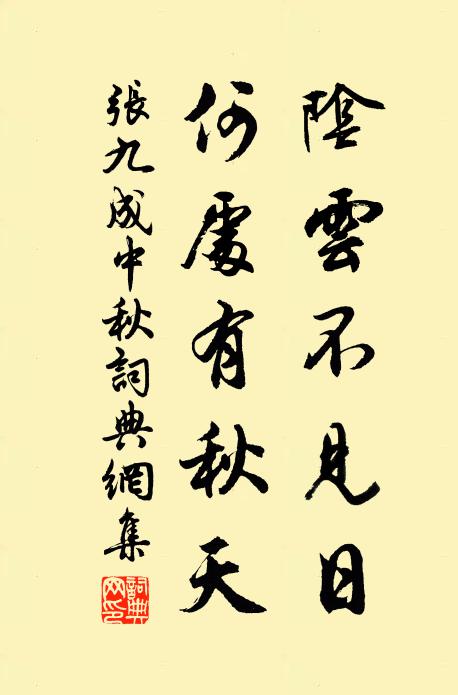 陰雲不見日
何處有秋天
張九成中秋詞典網集
詞典網印